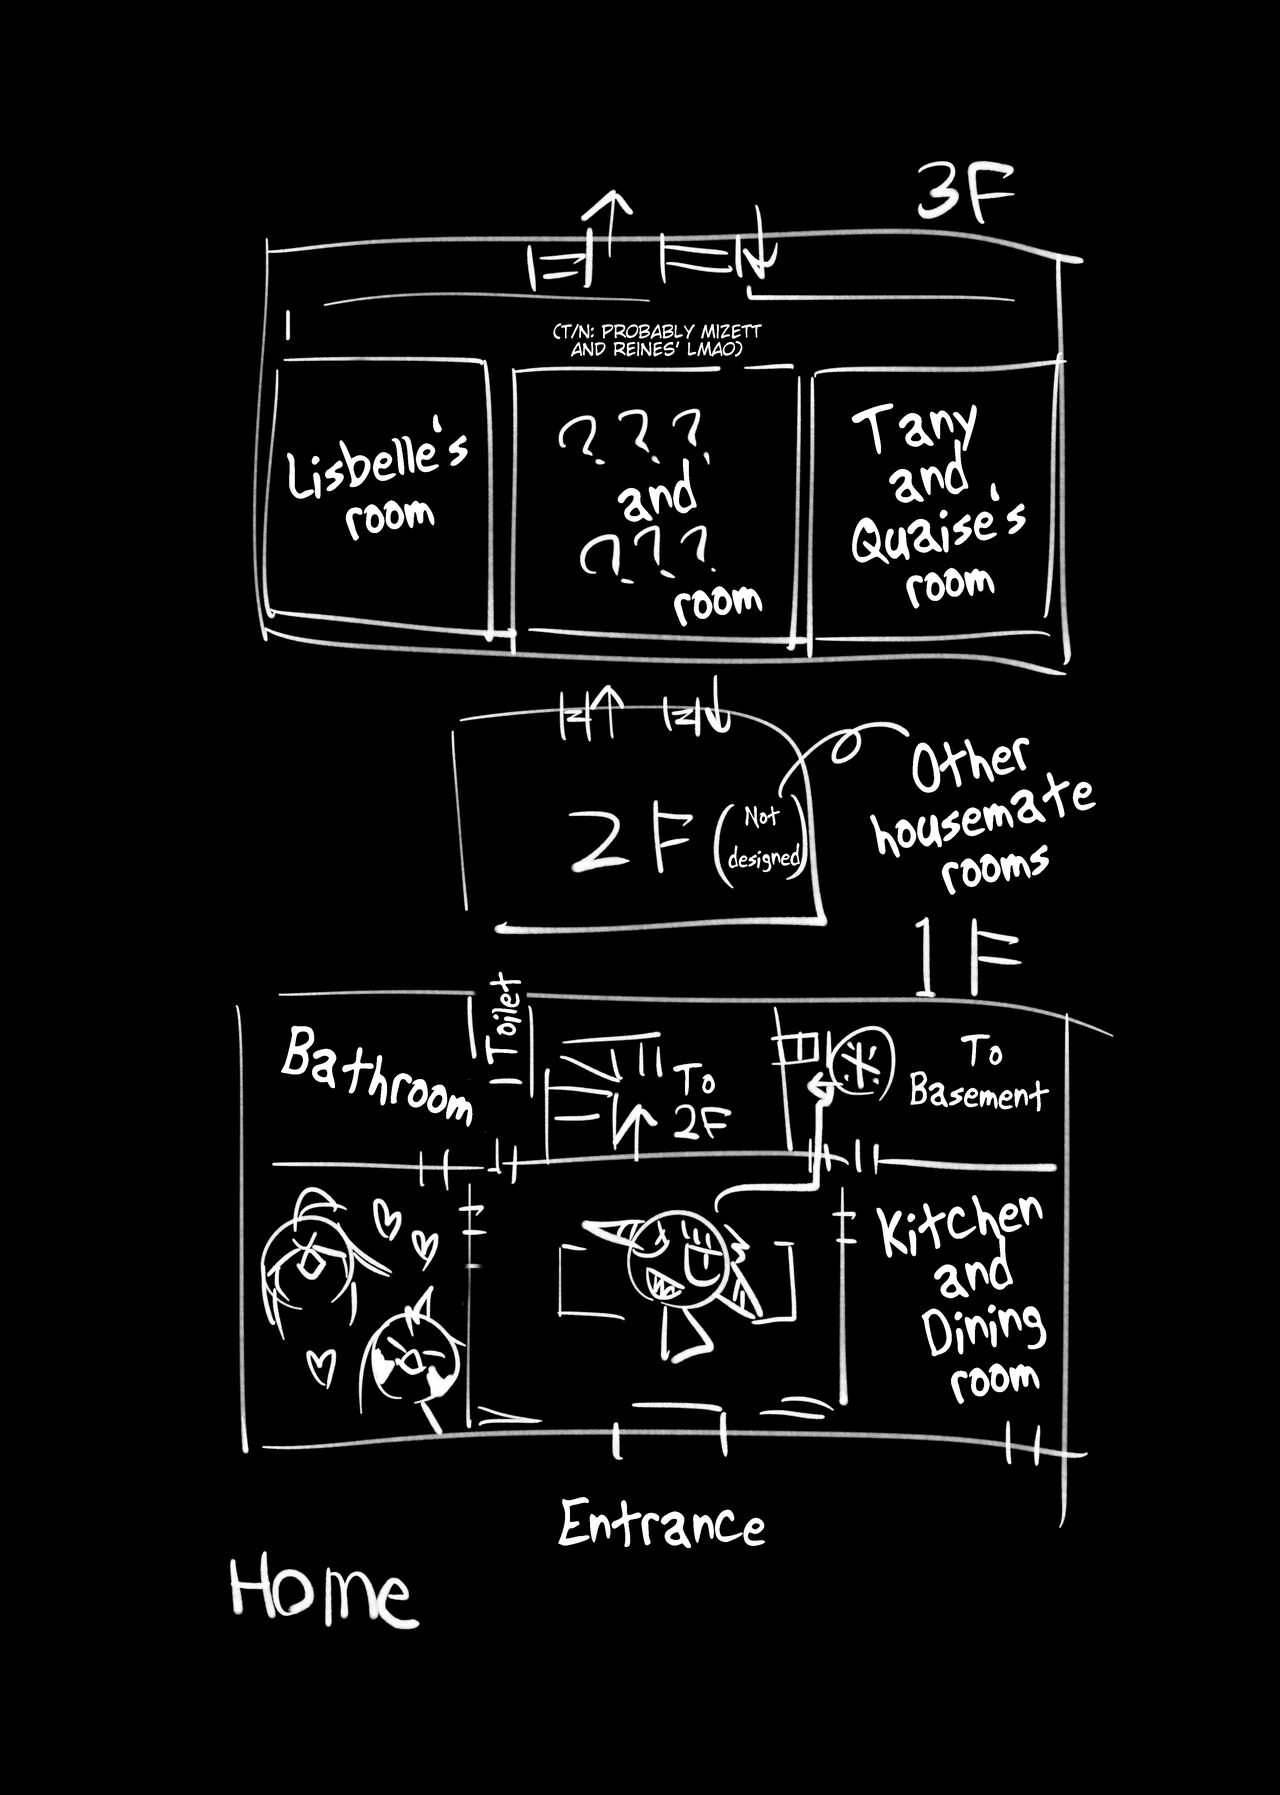 3F
(T/N: PROBABLY MIZETT
AND REINES' LMAO)
Lisbelle's
room
???
and
???
room
Tany
and
Quaise's
room
2F (Not
designed)
Other
housemate
rooms
1F
Bathroom
Toilet
To
2F
To
Basement
Kitchen
and
Dining
room
Entrance
Home